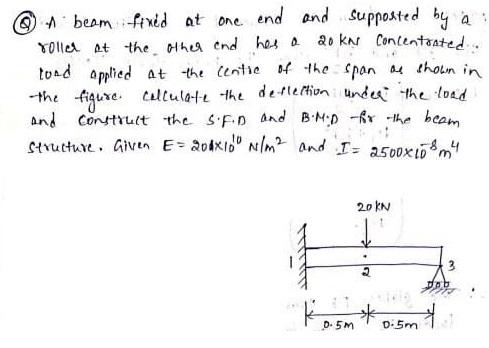 Q A beam fixed at one end and supported by a
roller at the other end has a 20 kN Concentrated
load applied at the centre of the span as shown in
the figure. Calculate the deflection under the load
and construct the S.F.D and B.M.D for the beam
structure. Given E = 20×10¹⁰ N/m² and I = 2500×10⁻⁸ m⁴
20 KN
1
2
3
0.5m
0.5m